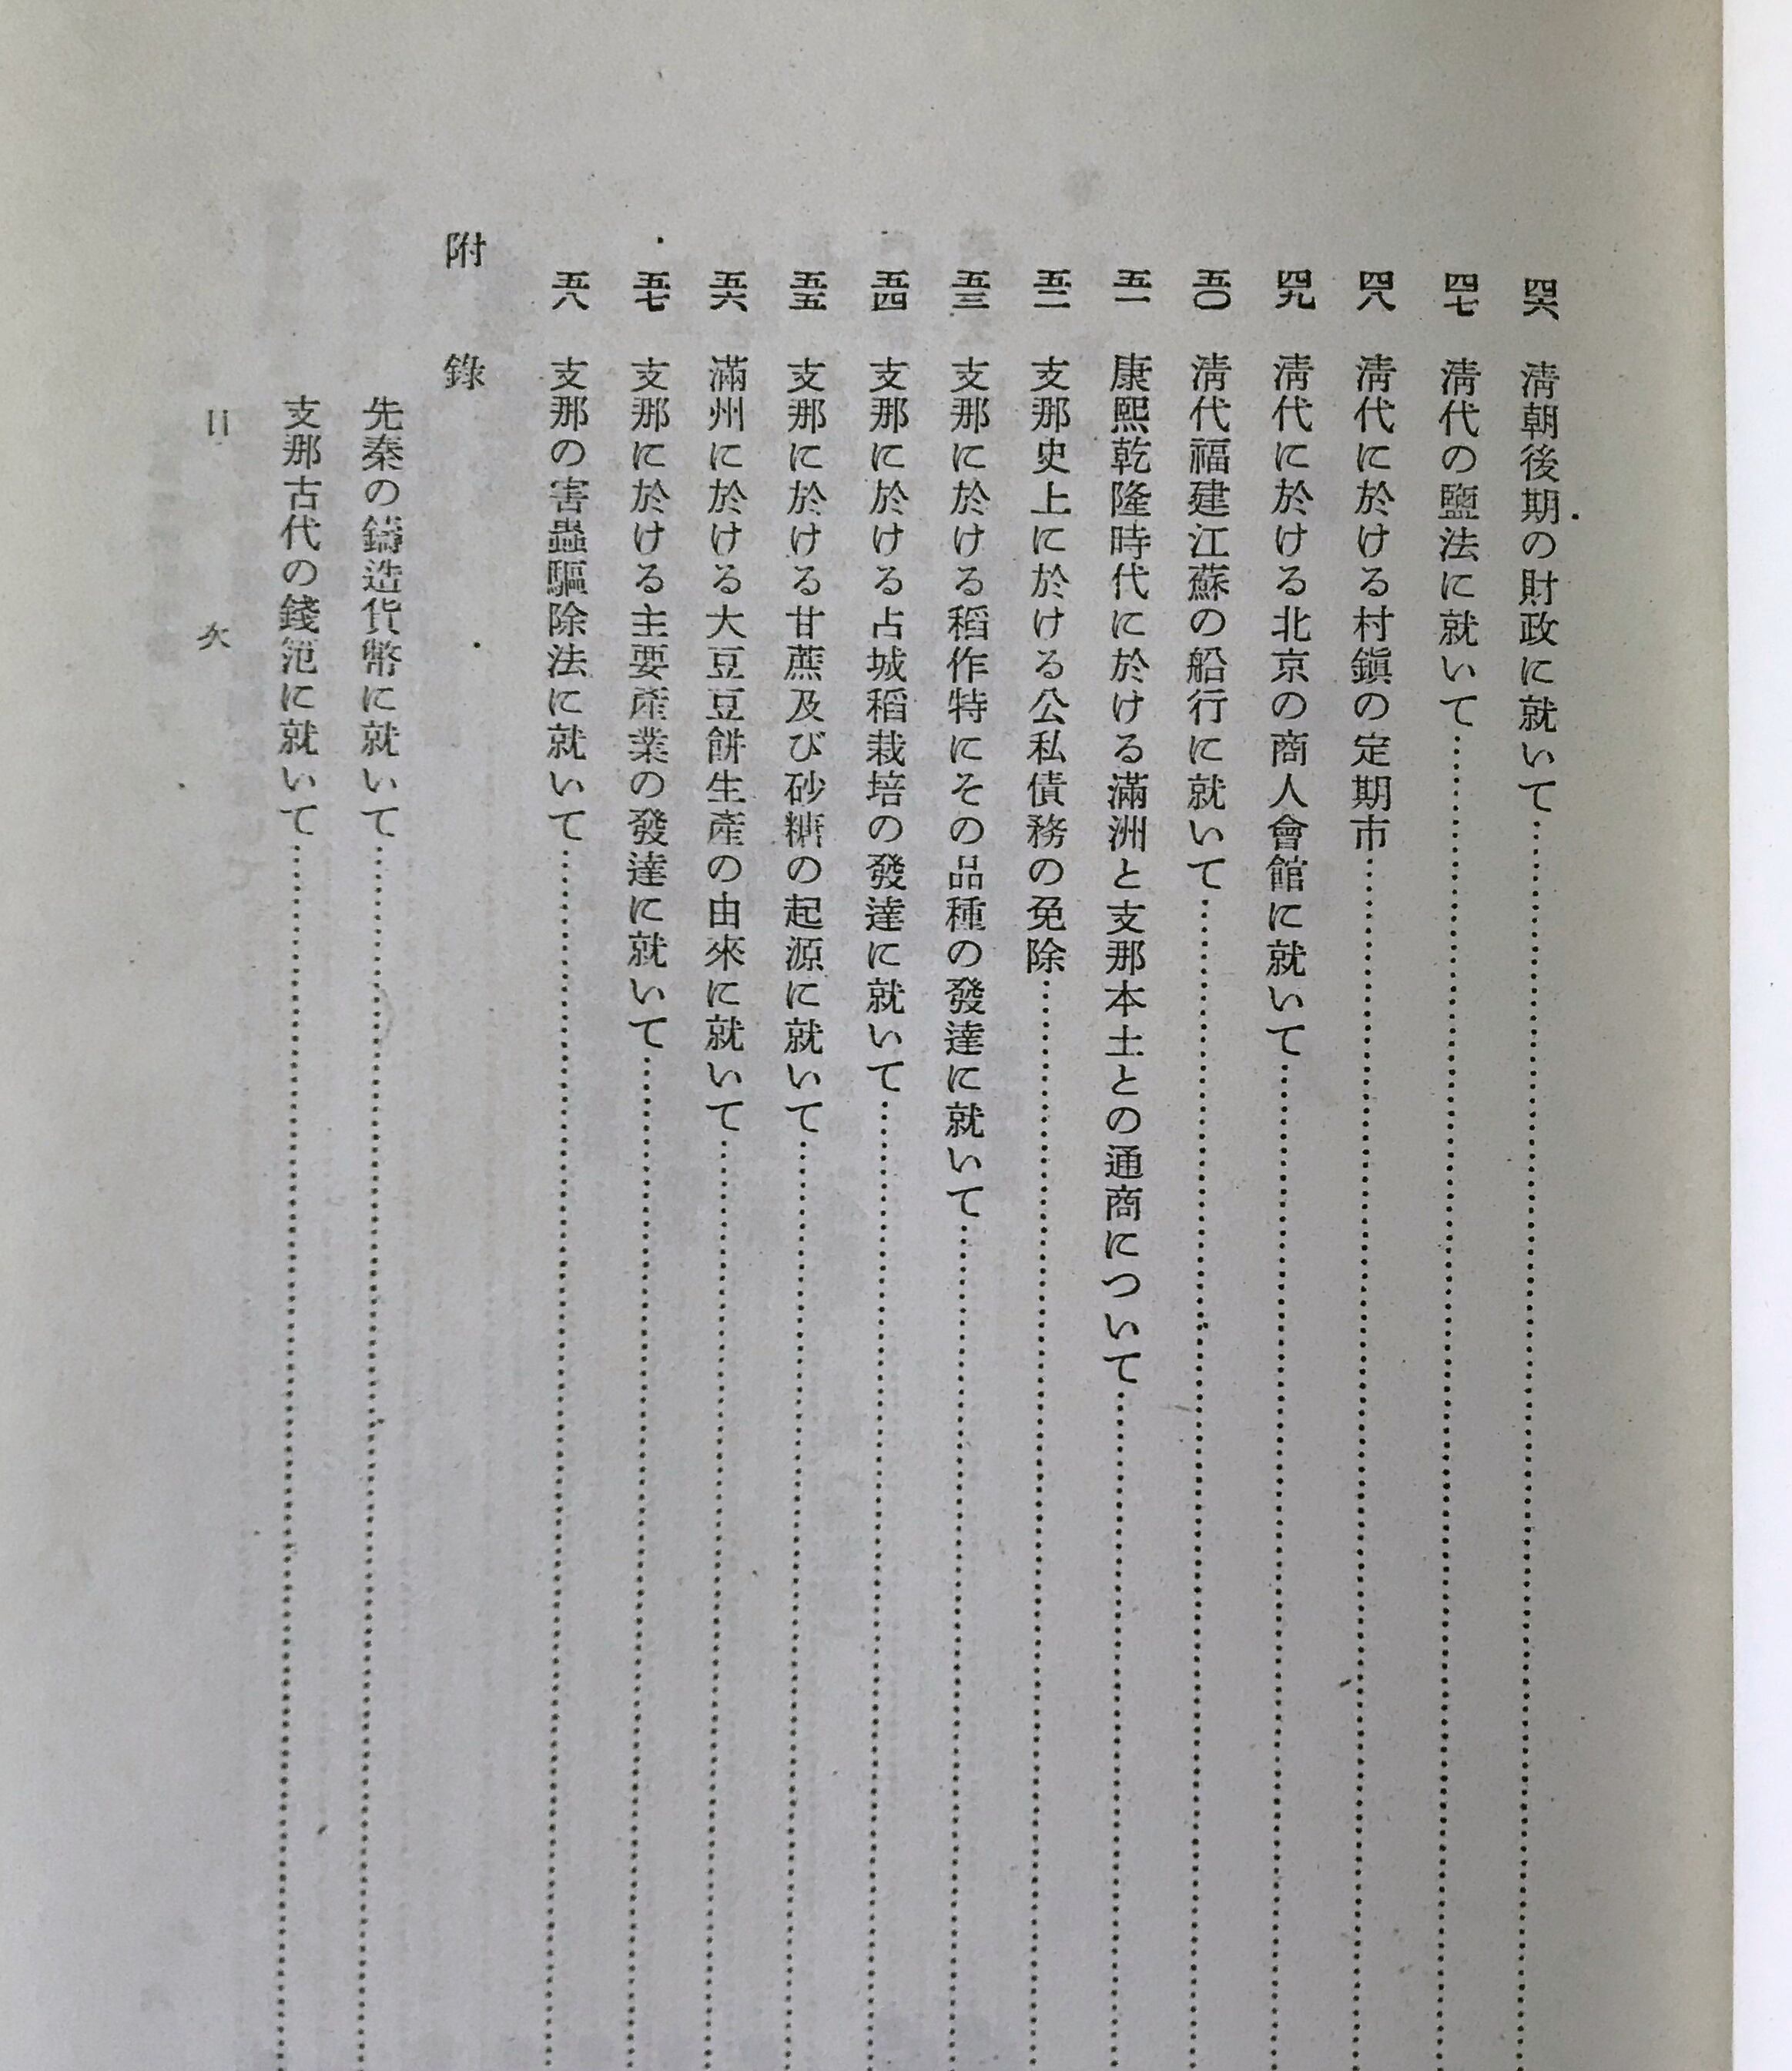 四六 淸朝後期の財政に就いて
四七 淸代の鹽法に就いて
四八 淸代に於ける村鎭の定期市
四九 淸代に於ける北京の商人會館に就いて
五〇 淸代福建江蘇の船行に就いて
五一 康熙乾隆時代に於ける滿洲と支那本土との通商について
五二 支那史上に於ける公私債務の免除
五三 支那に於ける稻作特にその品種の發達に就いて
五四 支那に於ける占城稻栽培の發達に就いて
五五 支那に於ける甘蔗及び砂糖の起源に就いて
五六 滿州に於ける大豆豆餅生產の由來に就いて
五七 支那に於ける主要產業の發達に就いて
五八 支那の害蟲驅除法に就いて
附 錄
先秦の鑄造貨幣に就いて
支那古代の錢范に就いて
目 次